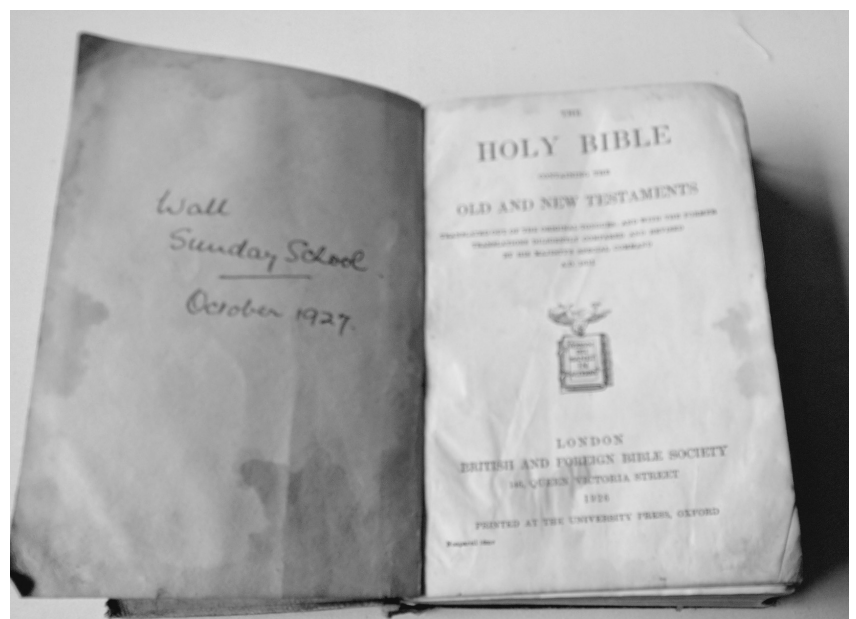 Wall
Sunday School.
October 1927.
THE
HOLY BIBLE
CONTAINING THE
OLD AND NEW TESTAMENTS
TRANSLATED OUT OF THE ORIGINAL TONGUES, AND WITH THE FORMER
TRANSLATIONS DILIGENTLY COMPARED AND REVISED
BY HIS MAJESTY'S SPECIAL COMMAND
LONDON
BRITISH AND FOREIGN BIBLE SOCIETY
146, QUEEN VICTORIA STREET
1926
PRINTED AT THE UNIVERSITY PRESS, OXFORD